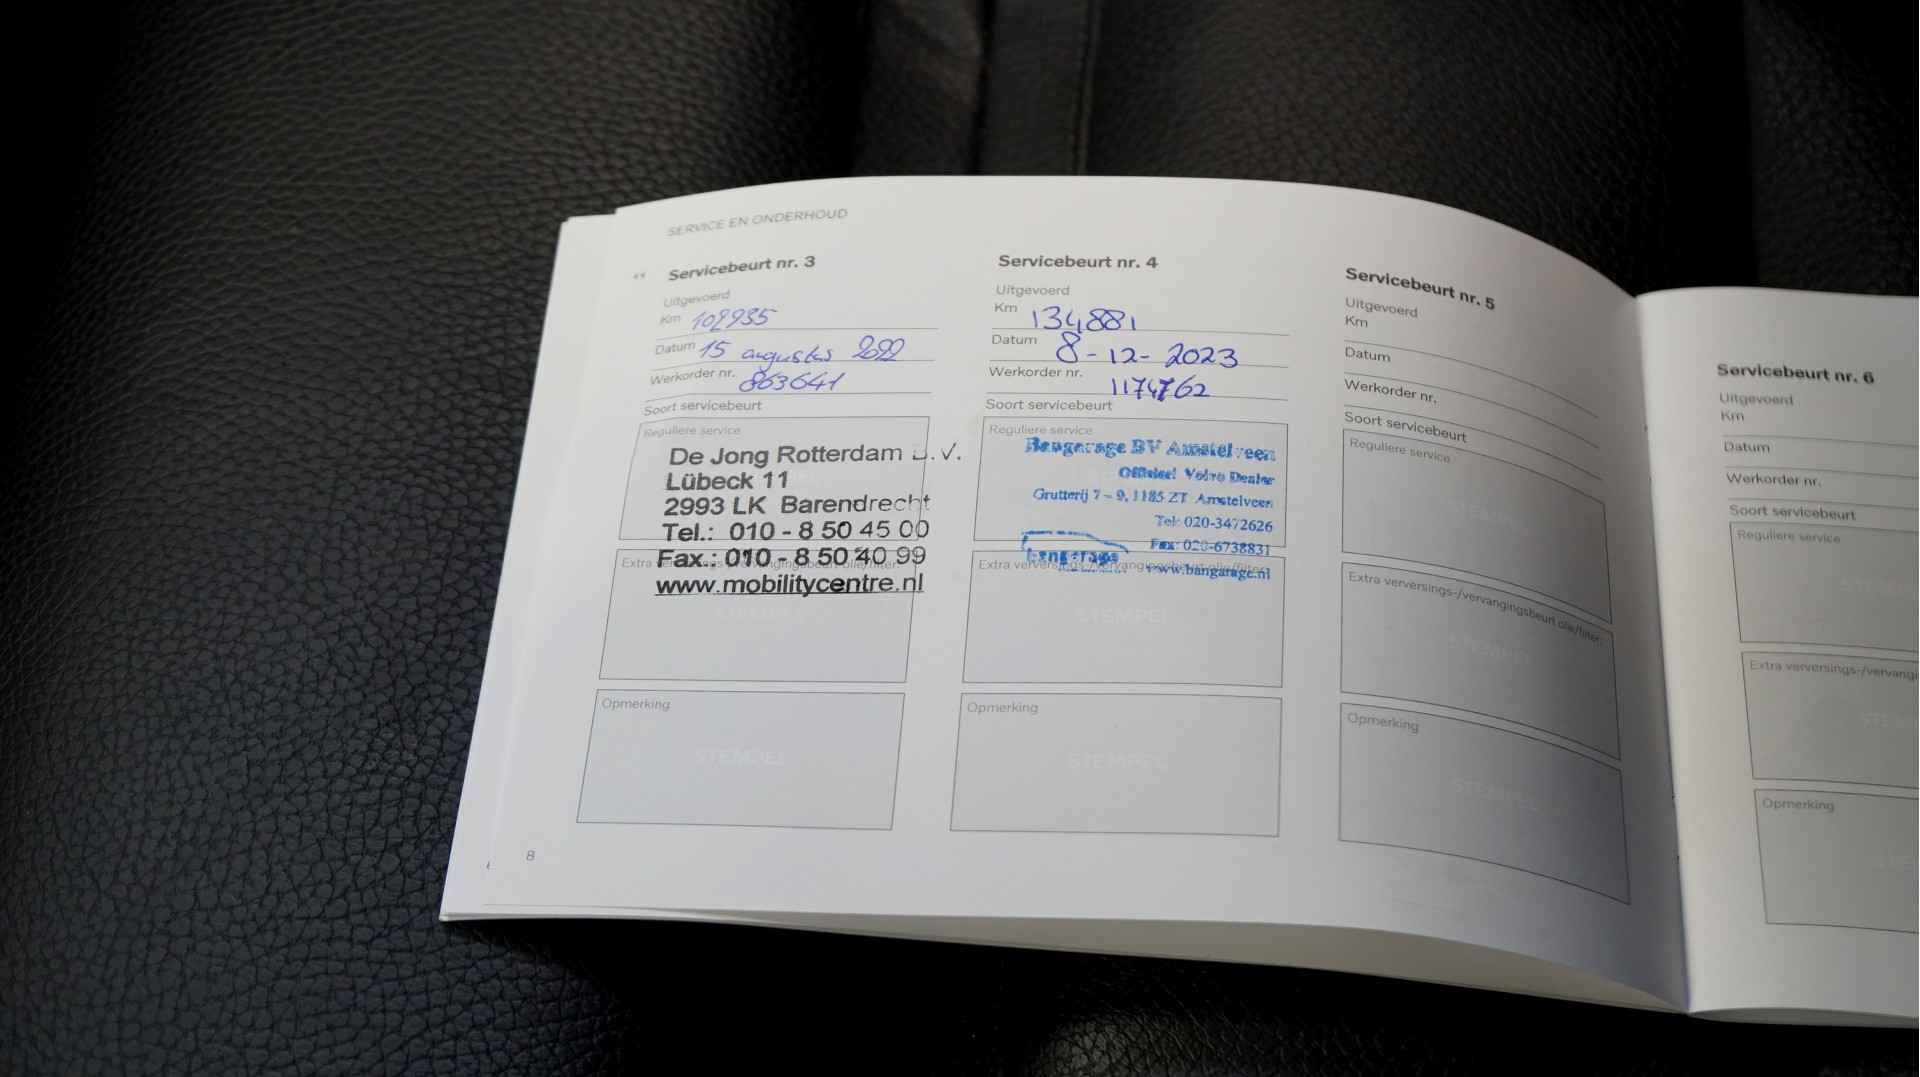 SERVICE EN ONDERHOUD
Servicebeurt nr. 3
Uitgevoerd
Km 109935
Datum 15 augustus 2022
Werkorder nr. 863641
Soort servicebeurt
Reguliere service
De Jong Rotterdam B.V.
Lübeck 11
2993 LK Barendrecht
Tel.: 010 - 8 50 45 00
Fax.: 010 - 8 50 40 99
Extra verversings-/vervangingsbeurt olie/filter:
www.mobilitycentre.nl
Opmerking
STEMPEL
8
Servicebeurt nr. 4
Uitgevoerd
Km 134881
Datum 8-12-2023
Werkorder nr. 1174762
Soort servicebeurt
Reguliere service
Bangarage BV Amstelveen
Officieel Volvo Dealer
Grutterij 7 - 9, 1185 ZT Amstelveen
Tel: 020-3472626
Fax: 020-6738831
bangarage
Extra verversings-/vervangingsbeurt olie/filter:
www.bangarage.nl
STEMPEL
Opmerking
STEMPEL
Servicebeurt nr. 5
Uitgevoerd
Km
Datum
Werkorder nr.
Soort servicebeurt
Reguliere service
STEMPEL
Extra verversings-/vervangingsbeurt olie/filter:
STEMPEL
Opmerking
STEMPEL
Servicebeurt nr. 6
Uitgevoerd
Km
Datum
Werkorder nr.
Soort servicebeurt
Reguliere service
Extra verversings-/vervangi
STEM
Opmerking